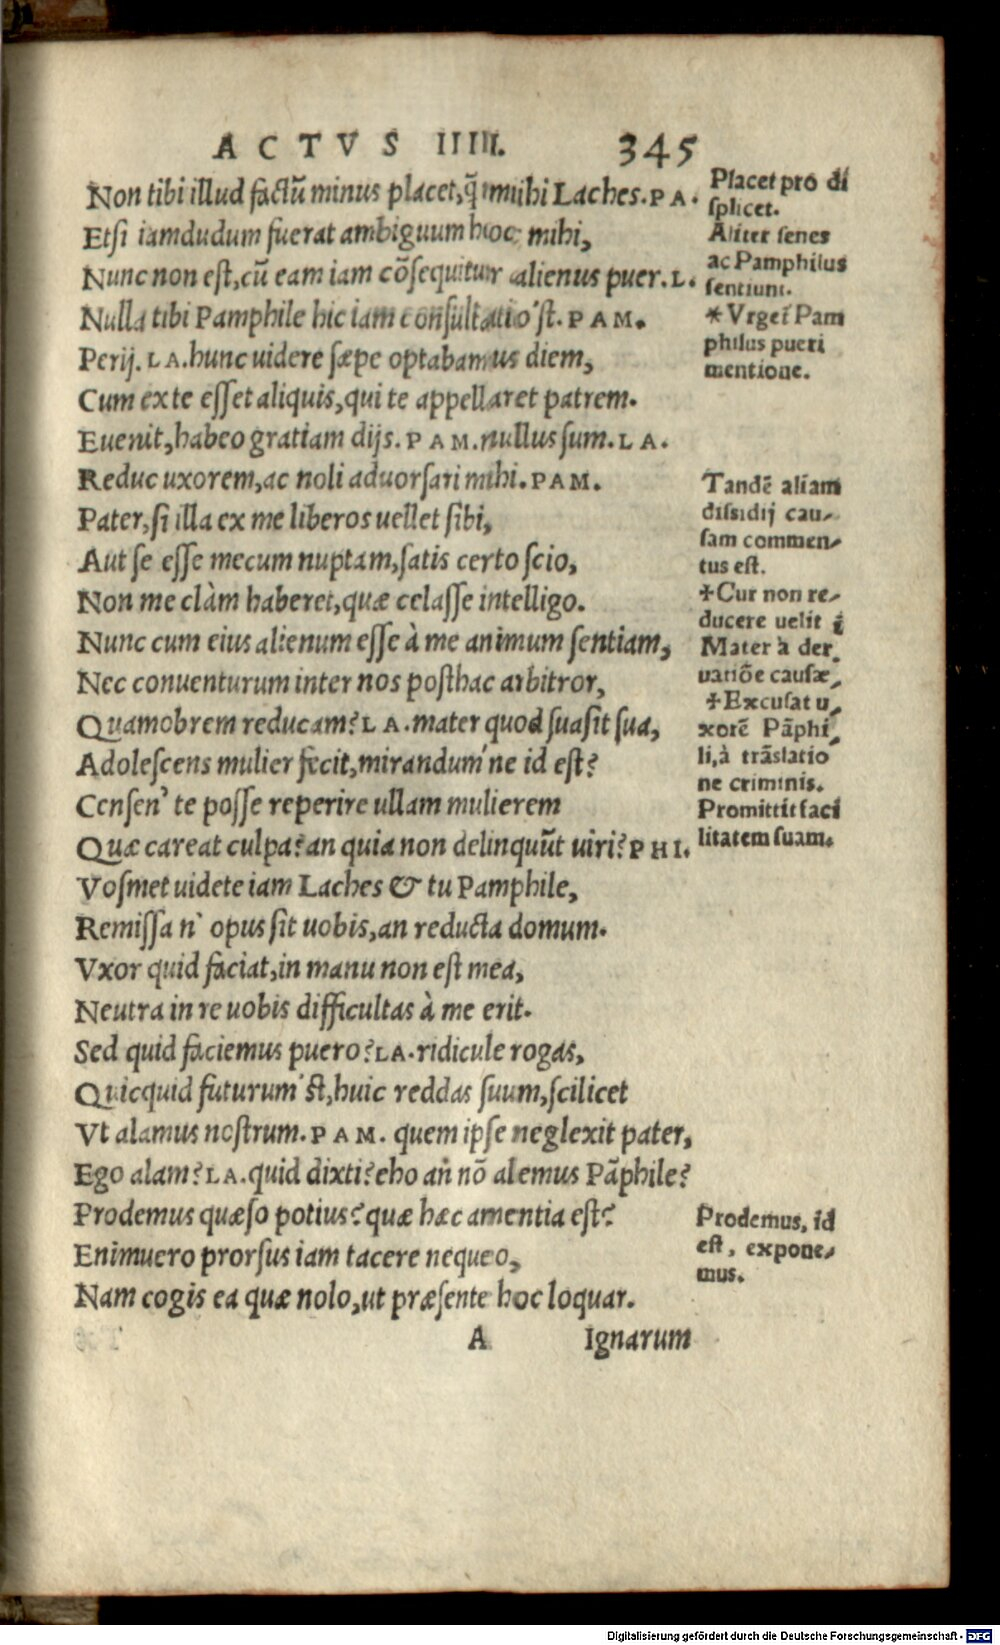 ACTVS IIII. 345
Non tibi illud factũ minus placet, q̃ mihi Laches. PA.
Etsi iamdudum fuerat ambiguum hoc mihi,
Nunc non est, cũ eam iam cõsequitur alienus puer. L.
Nulla tibi Pamphile hic iam consultatio'st. PAM.
Perij. LA. hunc uidere sæpe optabamus diem,
Cum ex te esset aliquis, qui te appellaret patrem.
Euenit, habeo gratiam dijs. PAM. nullus sum. LA.
Reduc uxorem, ac noli aduorsari mihi. PAM.
Pater, si illa ex me liberos uellet sibi,
Aut se esse mecum nuptam, satis certo scio,
Non me clàm haberet, quæ celasse intelligo.
Nunc cum eius alienum esse à me animum sentiam,
Nec conuenturum inter nos posthac arbitror,
Quamobrem reducam? LA. mater quod suasit sua,
Adolescens mulier fecit, mirandum'ne id est?
Censen' te posse reperire ullam mulierem
Quæ careat culpa? an quia non delinquũt uiri? PHI.
Vosmet uidete iam Laches & tu Pamphile,
Remissa n' opus sit uobis, an reducta domum.
Vxor quid faciat, in manu non est mea,
Neutra in re uobis difficultas à me erit.
Sed quid faciemus puero? LA. ridicule rogas,
Quicquid futurum'st, huic reddas suum, scilicet
Vt alamus nostrum. PAM. quem ipse neglexit pater,
Ego alam? LA. quid dixti? eho an̄ nõ alemus Pãphile?
Prodemus quæso potius? quæ hæc amentia est?
Enimuero prorsus iam tacere nequeo,
Nam cogis ea quæ nolo, ut præsente hoc loquar.
A Ignarum
Placet pro di
splicet.
Aliter senes
ac Pamphilus
sentiunt.
*Vrget̃ Pam
philus pueri
mentione.
Tandẽ aliam
dissidij cau-
sam commen-
tus est.
+Cur non re-
ducere uelit ĩ
Mater à der
uatiõe causæ,
+Excusat u,
xorẽ Pãphi,
li, à trãslatio
ne criminis.
Promittit faci
litatem suam.
Prodemus, id
est, expone-
mus.
Digitalisierung gefördert durch die Deutsche Forschungsgemeinschaft - DFG